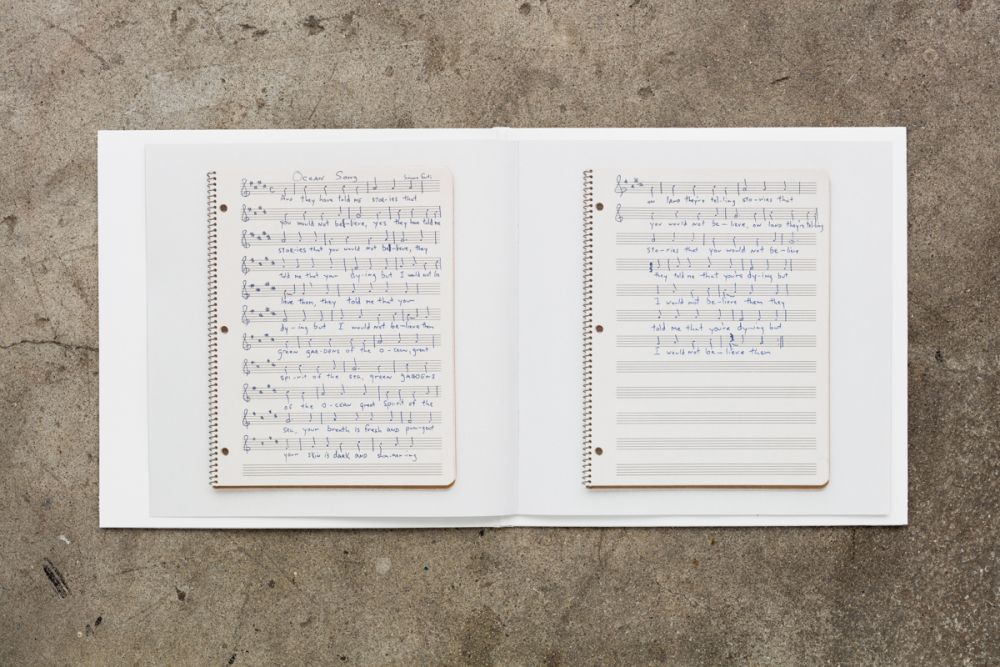 Ocean Song
and they have told me stor-ies that
you would not bel-lieve, yes they have told me
stor-ies that you would not be-lieve, they
told me that your dy-ing but I would not be
lieve them, they told me that your
dy-ing but I would not be-lieve them
green gardens of the o-cean, great
spi-rit of the sea, green gardens
of the o-cean great spirit of the
sea, your breath is fresh and pun-gent
your skin is dark and shim-mer-ing
on land they're tel-ling sto-ries that
you would not be-lieve, on land they're telling
sto-ries that you would not be-lieve
they told me that you're dy-ing but
I would not be-lieve them they
told me that you're dy-ing but
I would not be-lieve them